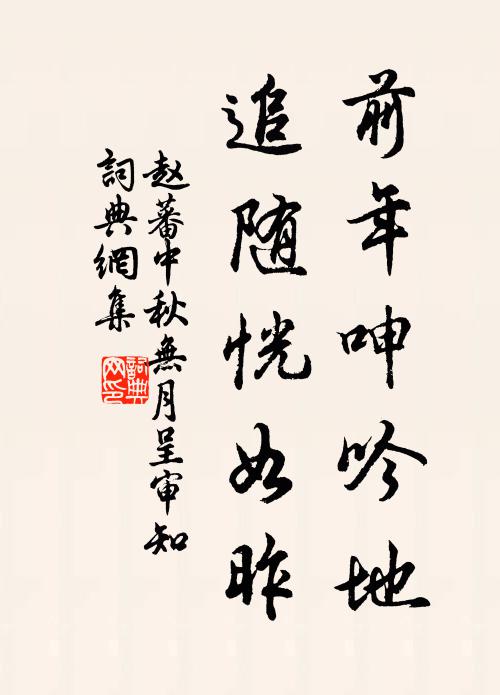 前年呻吟地
追随恍如昨
赵蕃中秋無月呈审知
詞典網集
詞典网印